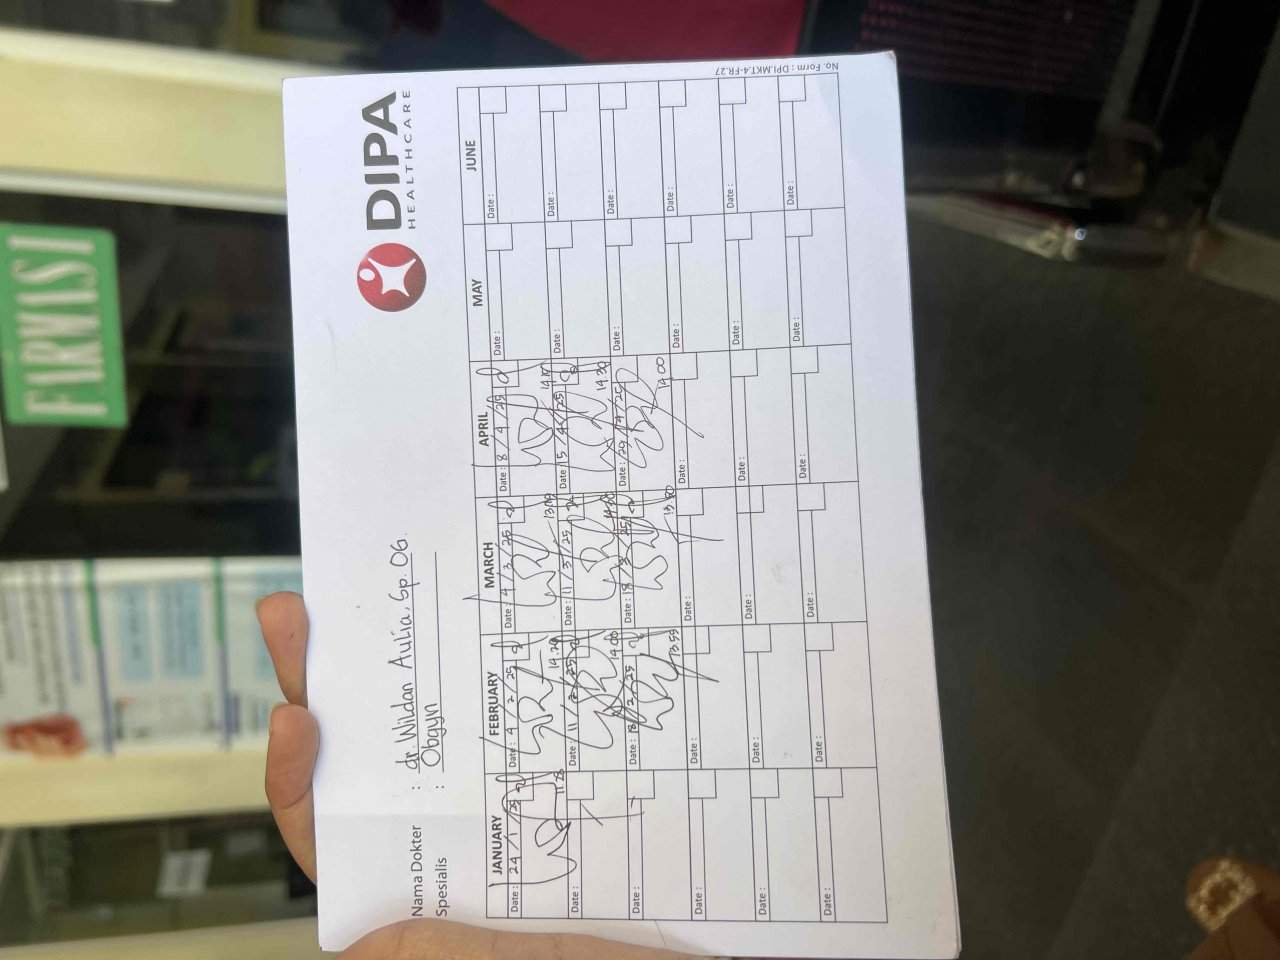 FARMASI
DIPA
HEALTHCARE
Nama Dokter : dr. Wildan Aulia, Sp. OG.
Spesialis : Obgyn
JANUARY FEBRUARY MARCH APRIL MAY JUNE
Date: 24/1/25 Date: 4/2/25 Date: 4/3/25 Date: 8/4/25 Date: Date:
11.25 14.20 13.00
Date: Date: 11/2/25 Date: 11/3/25 Date: 15/4/25 Date: Date:
14.00 14.30
Date: Date: 18/2/25 Date: 18/3/25 Date: 29/4/25 Date: Date:
13.59 14.00
Date: Date: Date: Date: Date: Date:
Date: Date: Date: Date: Date: Date:
Date: Date: Date: Date: Date: Date:
No. Form : DPI.MKT.4-FR.27